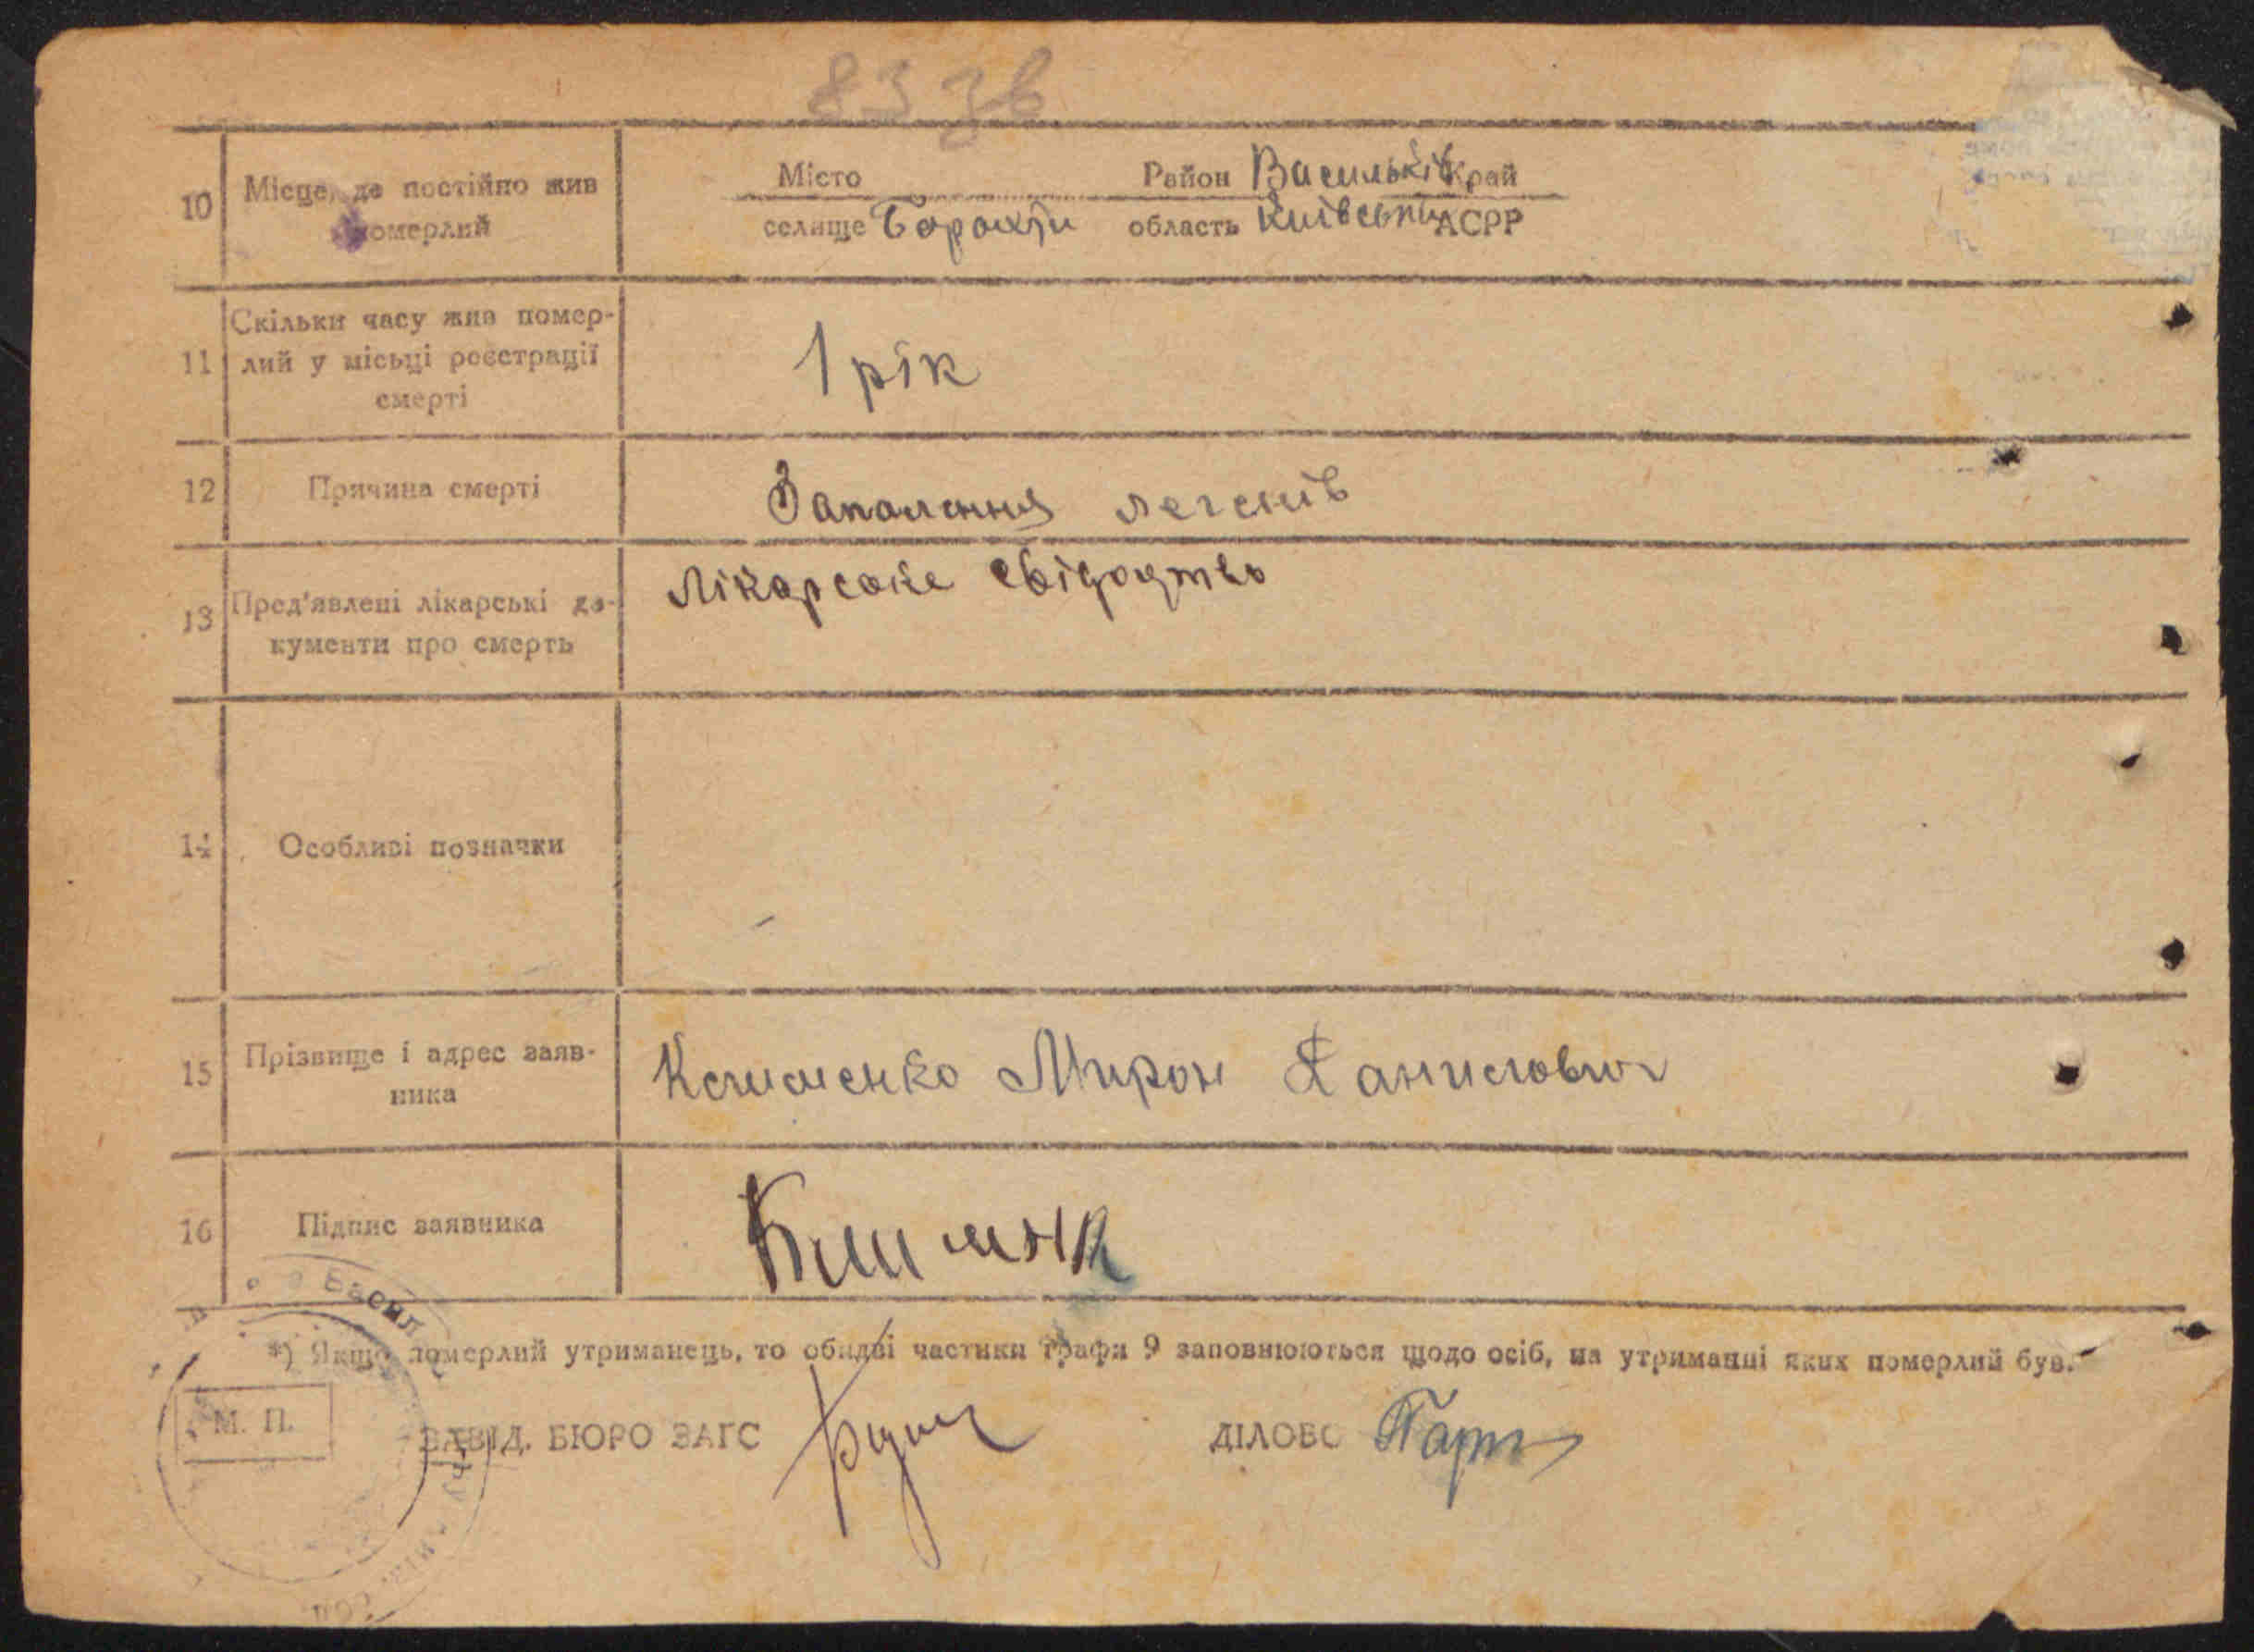 83 зв
10 Місце, де постійно жив померлий
Місто Район Васильків Край
селище Борахти область Київська АСРР
11 Скільки часу жив помер-
лий у місьці реєстрації
смерті
1 рік
12 Причина смерті Запалення легенів
13 Пред'явлені лікарські до-
кументи про смерть
Лікарське свідоцтво
14 Особливі позначки
15 Прізвище і адрес заяв-
ника
Клименко Мирон Данилович
16 Підпис заявника
*) Якщо померлий утриманець, то обидві частини графи 9 заповнюються щодо осіб, на утриманні яких померлий був.
М. П.
ЗАВІД. БЮРО ЗАГС ДІЛОВО